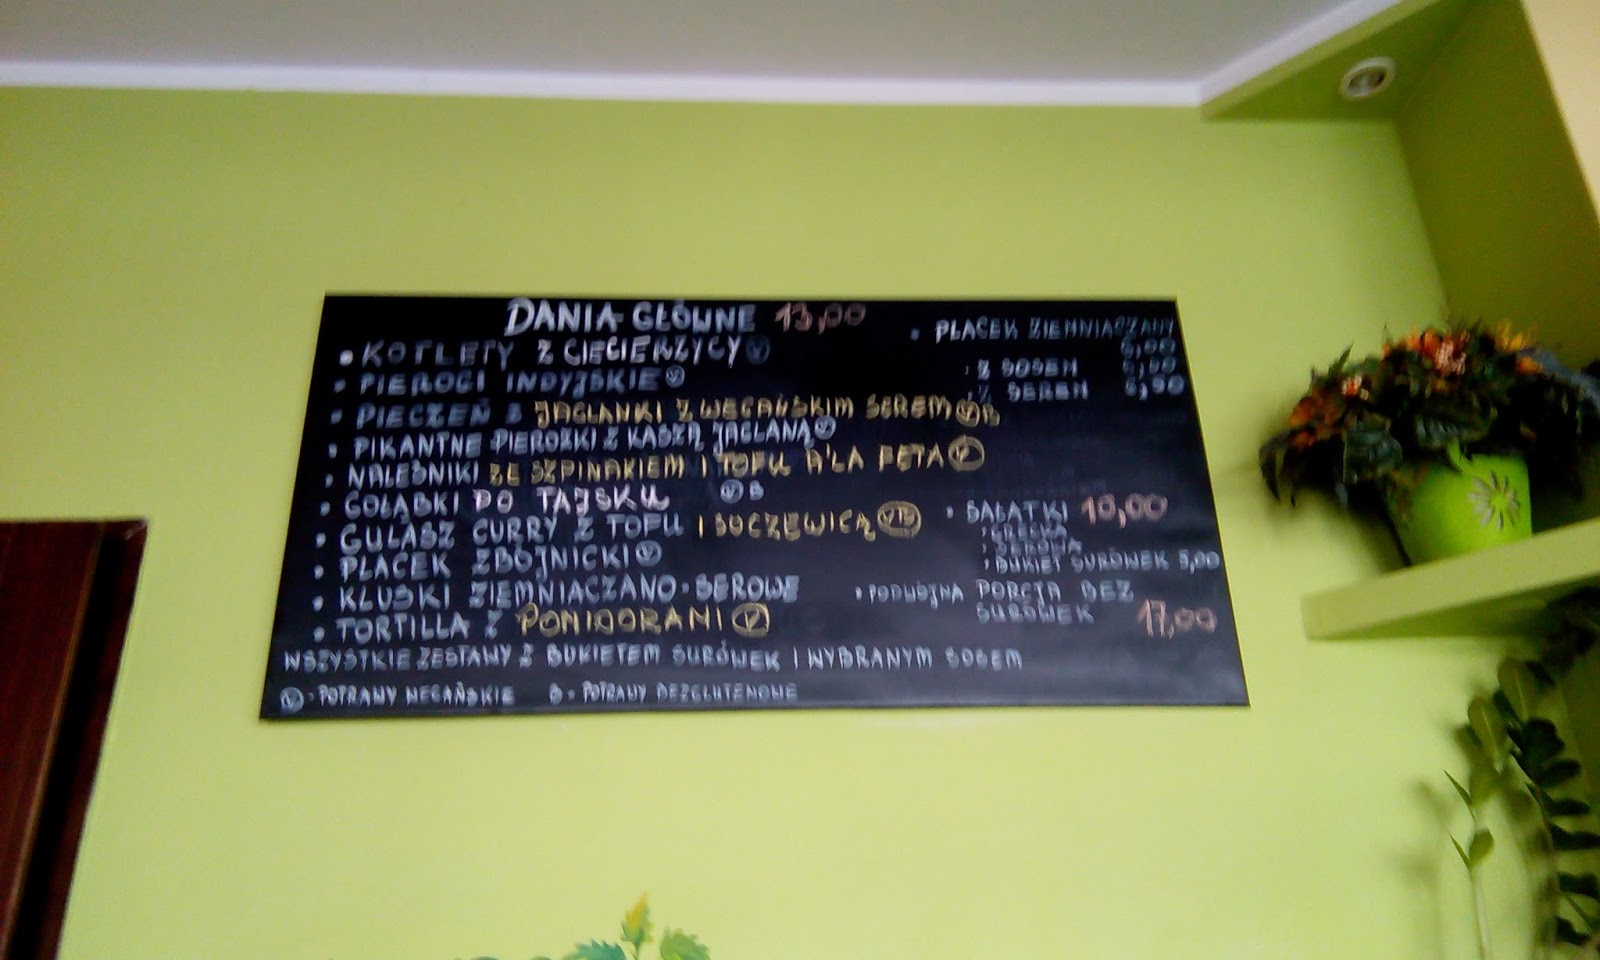 DANIA GŁÓWNE 13,00
• KOTLETY Z CIECIERZYCY Ⓥ
• PIEROGI INDYJSKIE Ⓥ
• PIECZEŃ Z JAGLANKI Z WEGAŃSKIM SEREM Ⓥ B
• PIKANTNE PIEROŻKI Z KASZĄ JAGLANĄ Ⓥ
• NALEŚNIKI ZE SZPINAKIEM I TOFU A'LA FETA Ⓥ
• GOŁĄBKI PO TAJSKU Ⓥ B
• GULASZ CURRY Z TOFU I SOCZEWICĄ ⓋB
• PLACEK ZBÓJNICKI Ⓥ
• KLUSKI ZIEMNIACZANO-SEROWE
• TORTILLA Z POMIDORAMI Ⓥ
WSZYSTKIE ZESTAWY Z BUKIETEM SURÓWEK I WYBRANYM SOSEM
Ⓥ - POTRAWY WEGAŃSKIE B - POTRAWY BEZGLUTENOWE
• PLACEK ZIEMNIACZANY
6,00
• Z SOSEM
Z SEREM 6,50
• SAŁATKI 10,00
• GRECKA
• SEROWA
• BUKIET SURÓWEK 5,00
• PODWÓJNA PORCJA BEZ
SURÓWEK 17,00